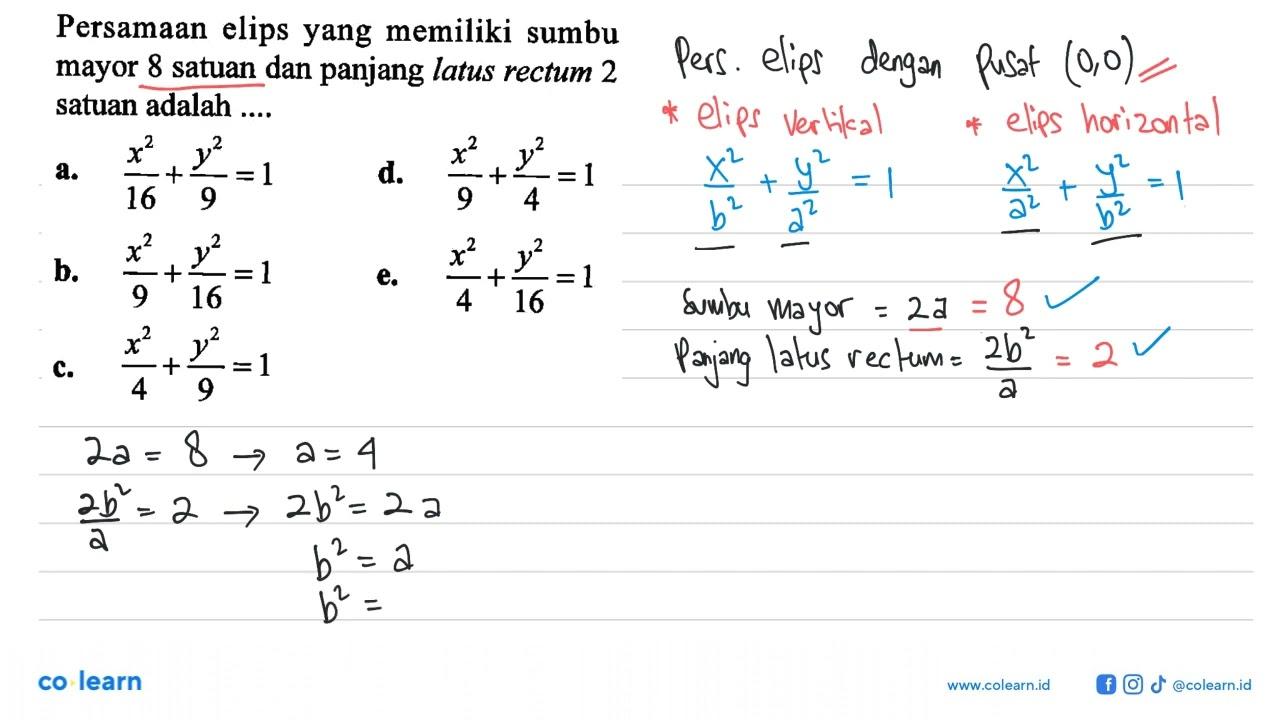 Persamaan elips yang memiliki sumbu
mayor 8 satuan dan panjang latus rectum 2
satuan adalah ....
a. x²/16 + y²/9 = 1
b. x²/9 + y²/16 = 1
c. x²/4 + y²/9 = 1
d. x²/9 + y²/4 = 1
e. x²/4 + y²/16 = 1
Pers. elips dengan Pusat (0,0)
* elips vertikal
x²/b² + y²/a² = 1
* elips horizontal
x²/a² + y²/b² = 1
Sumbu mayor = 2a = 8 ✓
Panjang latus rectum = 2b²/a = 2 ✓
2a = 8 → a = 4
2b²/a = 2 → 2b² = 2a
b² = a
b² =
co learn
www.colearn.id
@colearn.id